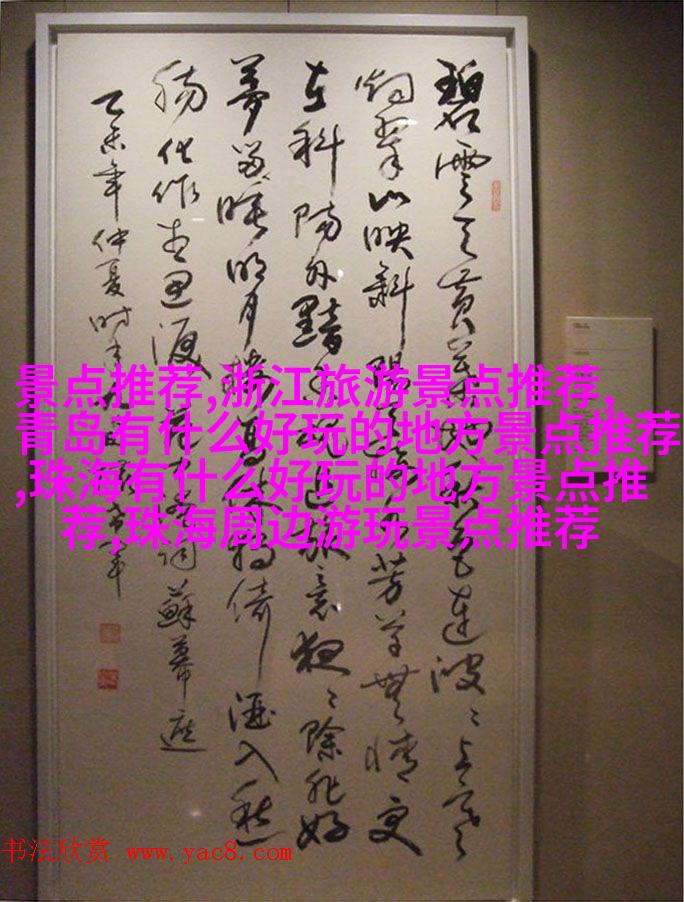 碧雲天黃葉地秋色連波〻上寒
烟翠山映斜陽天接水芳草無情更
在斜陽外黯鄉魂追旅意夜〻除非好
夢留睡明月樓高休獨倚酒入愁
腸化作相思淚詞蘇幕遮
乙未年仲夏时
景点推荐,浙江旅游景点推荐,
青岛有什么好玩的地方景点推荐
,珠海有什么好玩的地方景点推
荐,珠海周边游玩景点推荐
书法欣赏 www.yac8.com